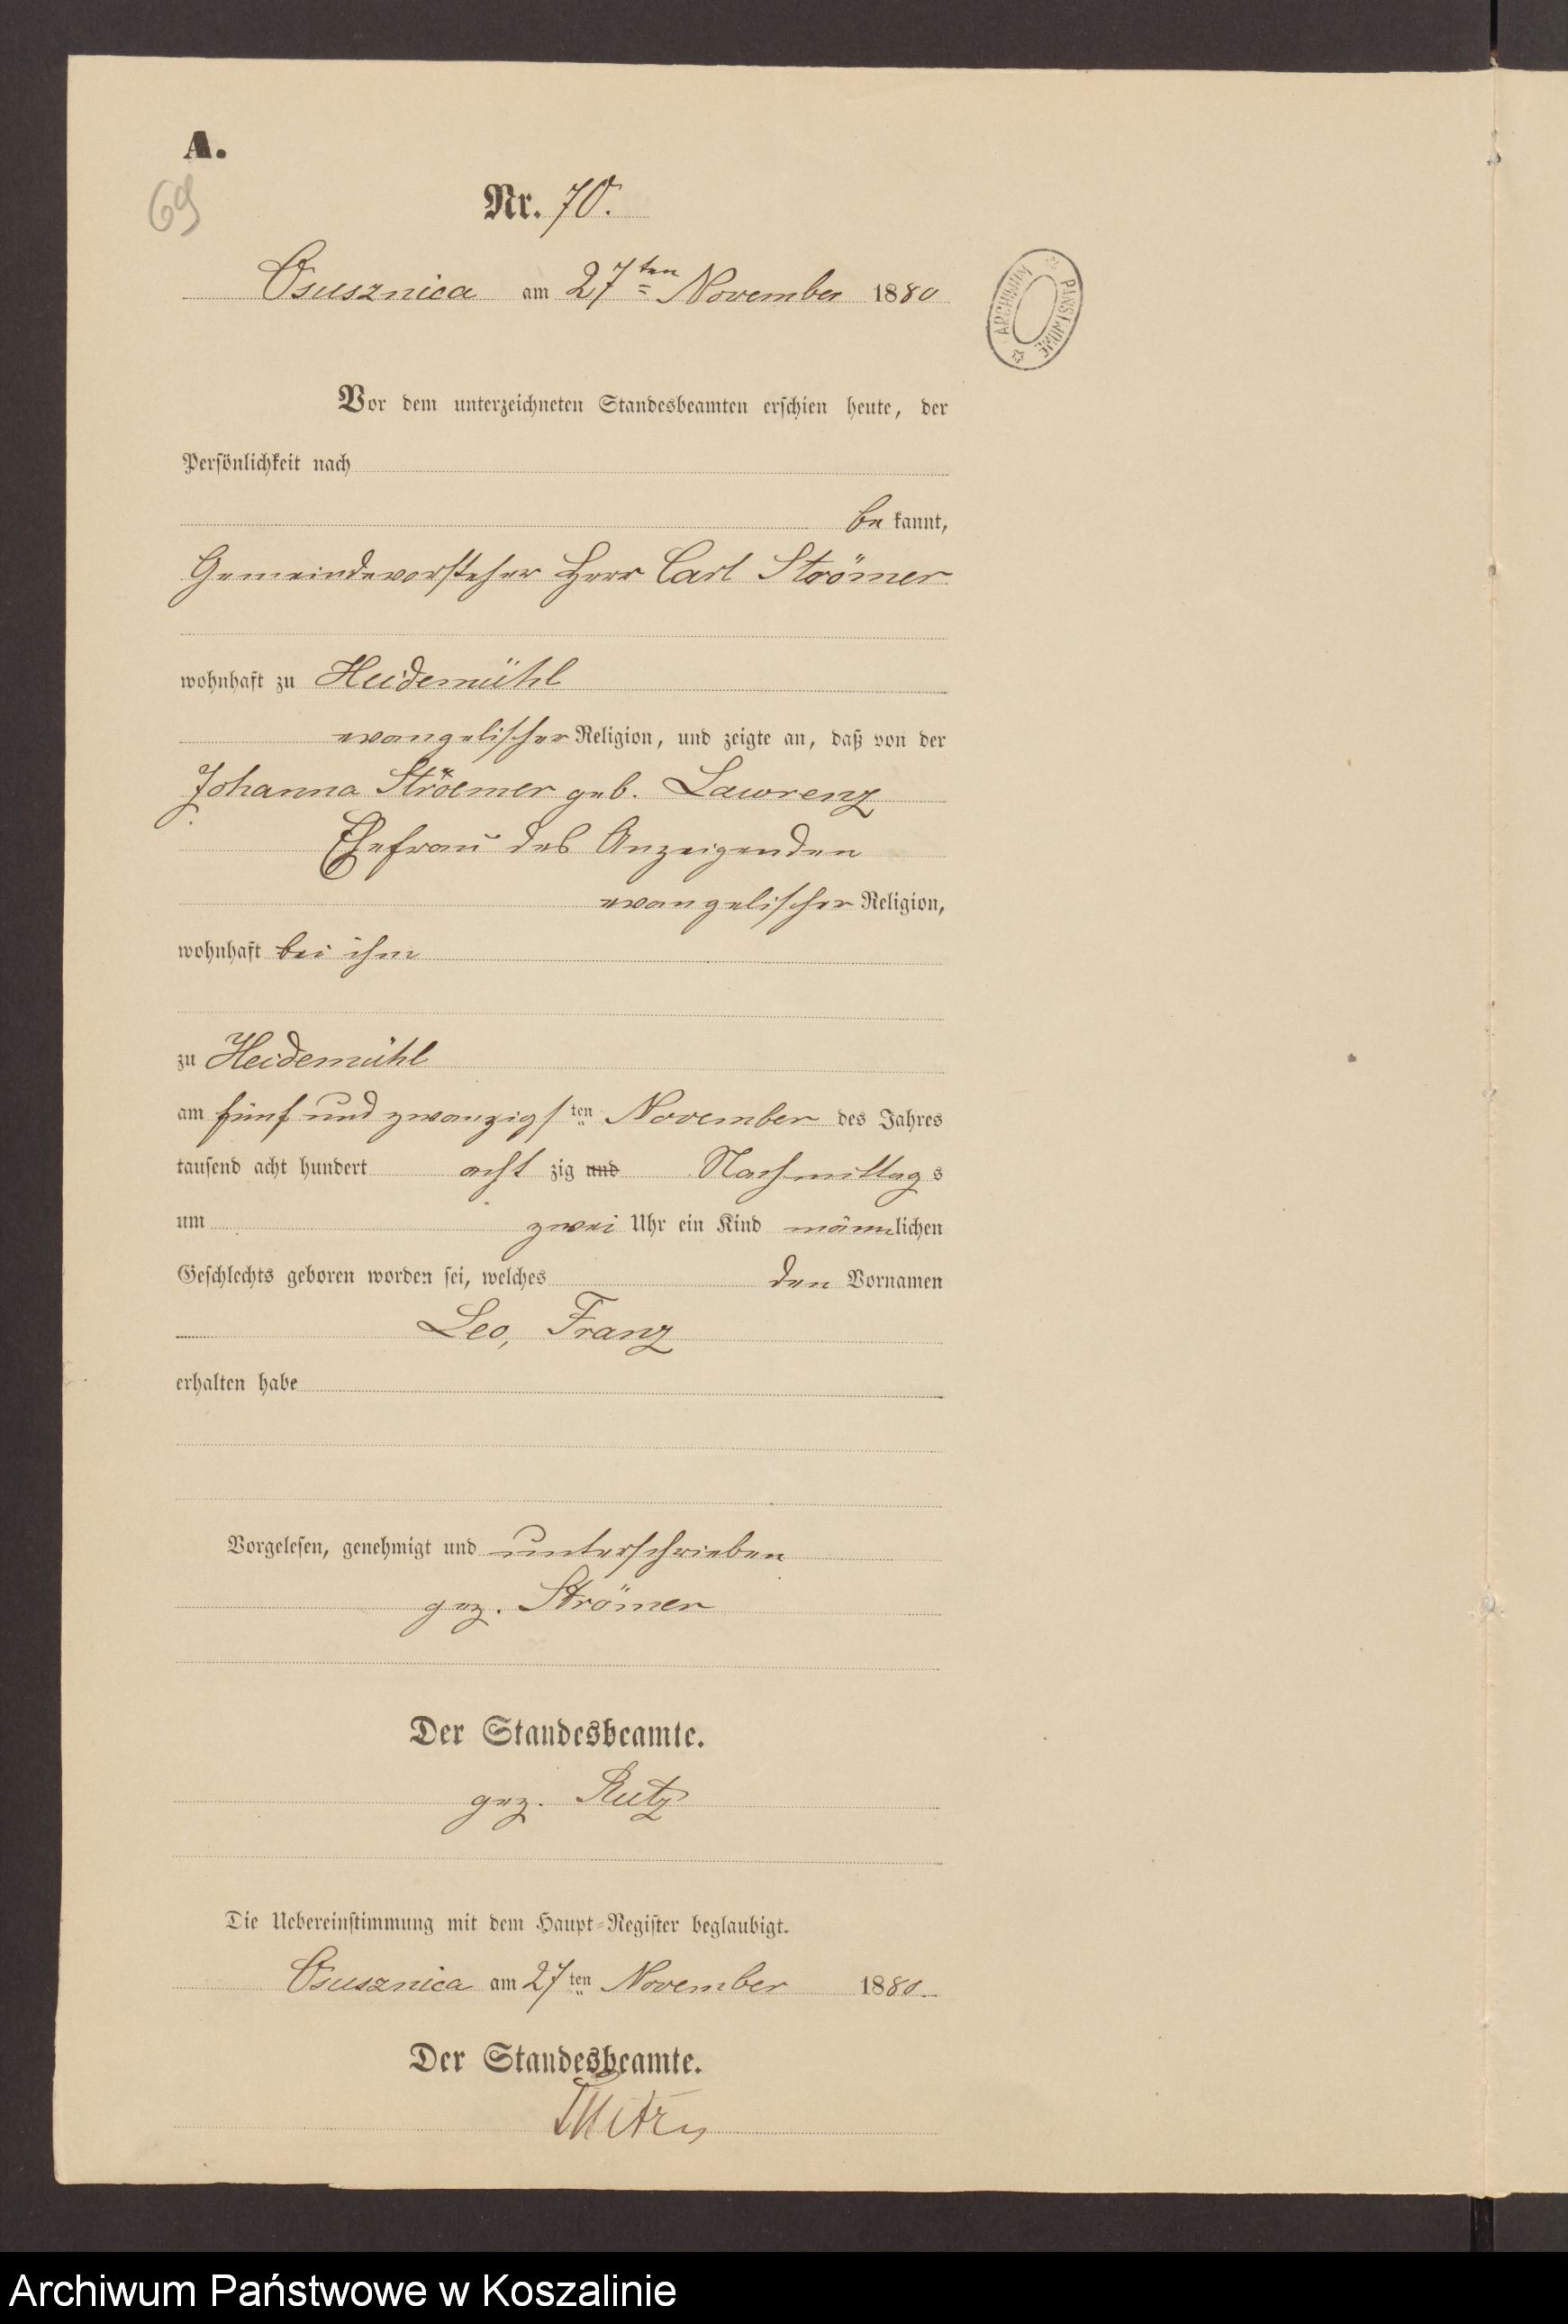 A.
69
Nr. 70.
Osusznica am 27ten November 1880
ARCHIWUM PAŃSTWOWE
Vor dem unterzeichneten Standesbeamten erschien heute, der
Persönlichkeit nach
bekannt,
Gemeindevorsteher Herr Carl Strömer
wohnhaft zu Heidemühl
evangelischer Religion, und zeigte an, daß von der
Johanna Ströemer geb. Lawrenz
Ehefrau des Anzeigenden
evangelischer Religion,
wohnhaft bei ihm
zu Heidemühl
am fünf und zwanzigsten November des Jahres
tausend acht hundert acht zig und Nachmittags
um zwei Uhr ein Kind männlichen
Geschlechts geboren worden sei, welches den Vornamen
Leo, Franz
erhalten habe
Vorgelesen, genehmigt und unterschrieben
gez. Strömer
Der Standesbeamte.
gez. Rutz
Die Uebereinstimmung mit dem Haupt-Register beglaubigt.
Osusznica am 27ten November 1880
Der Standesbeamte.
Archiwum Państwowe w Koszalinie